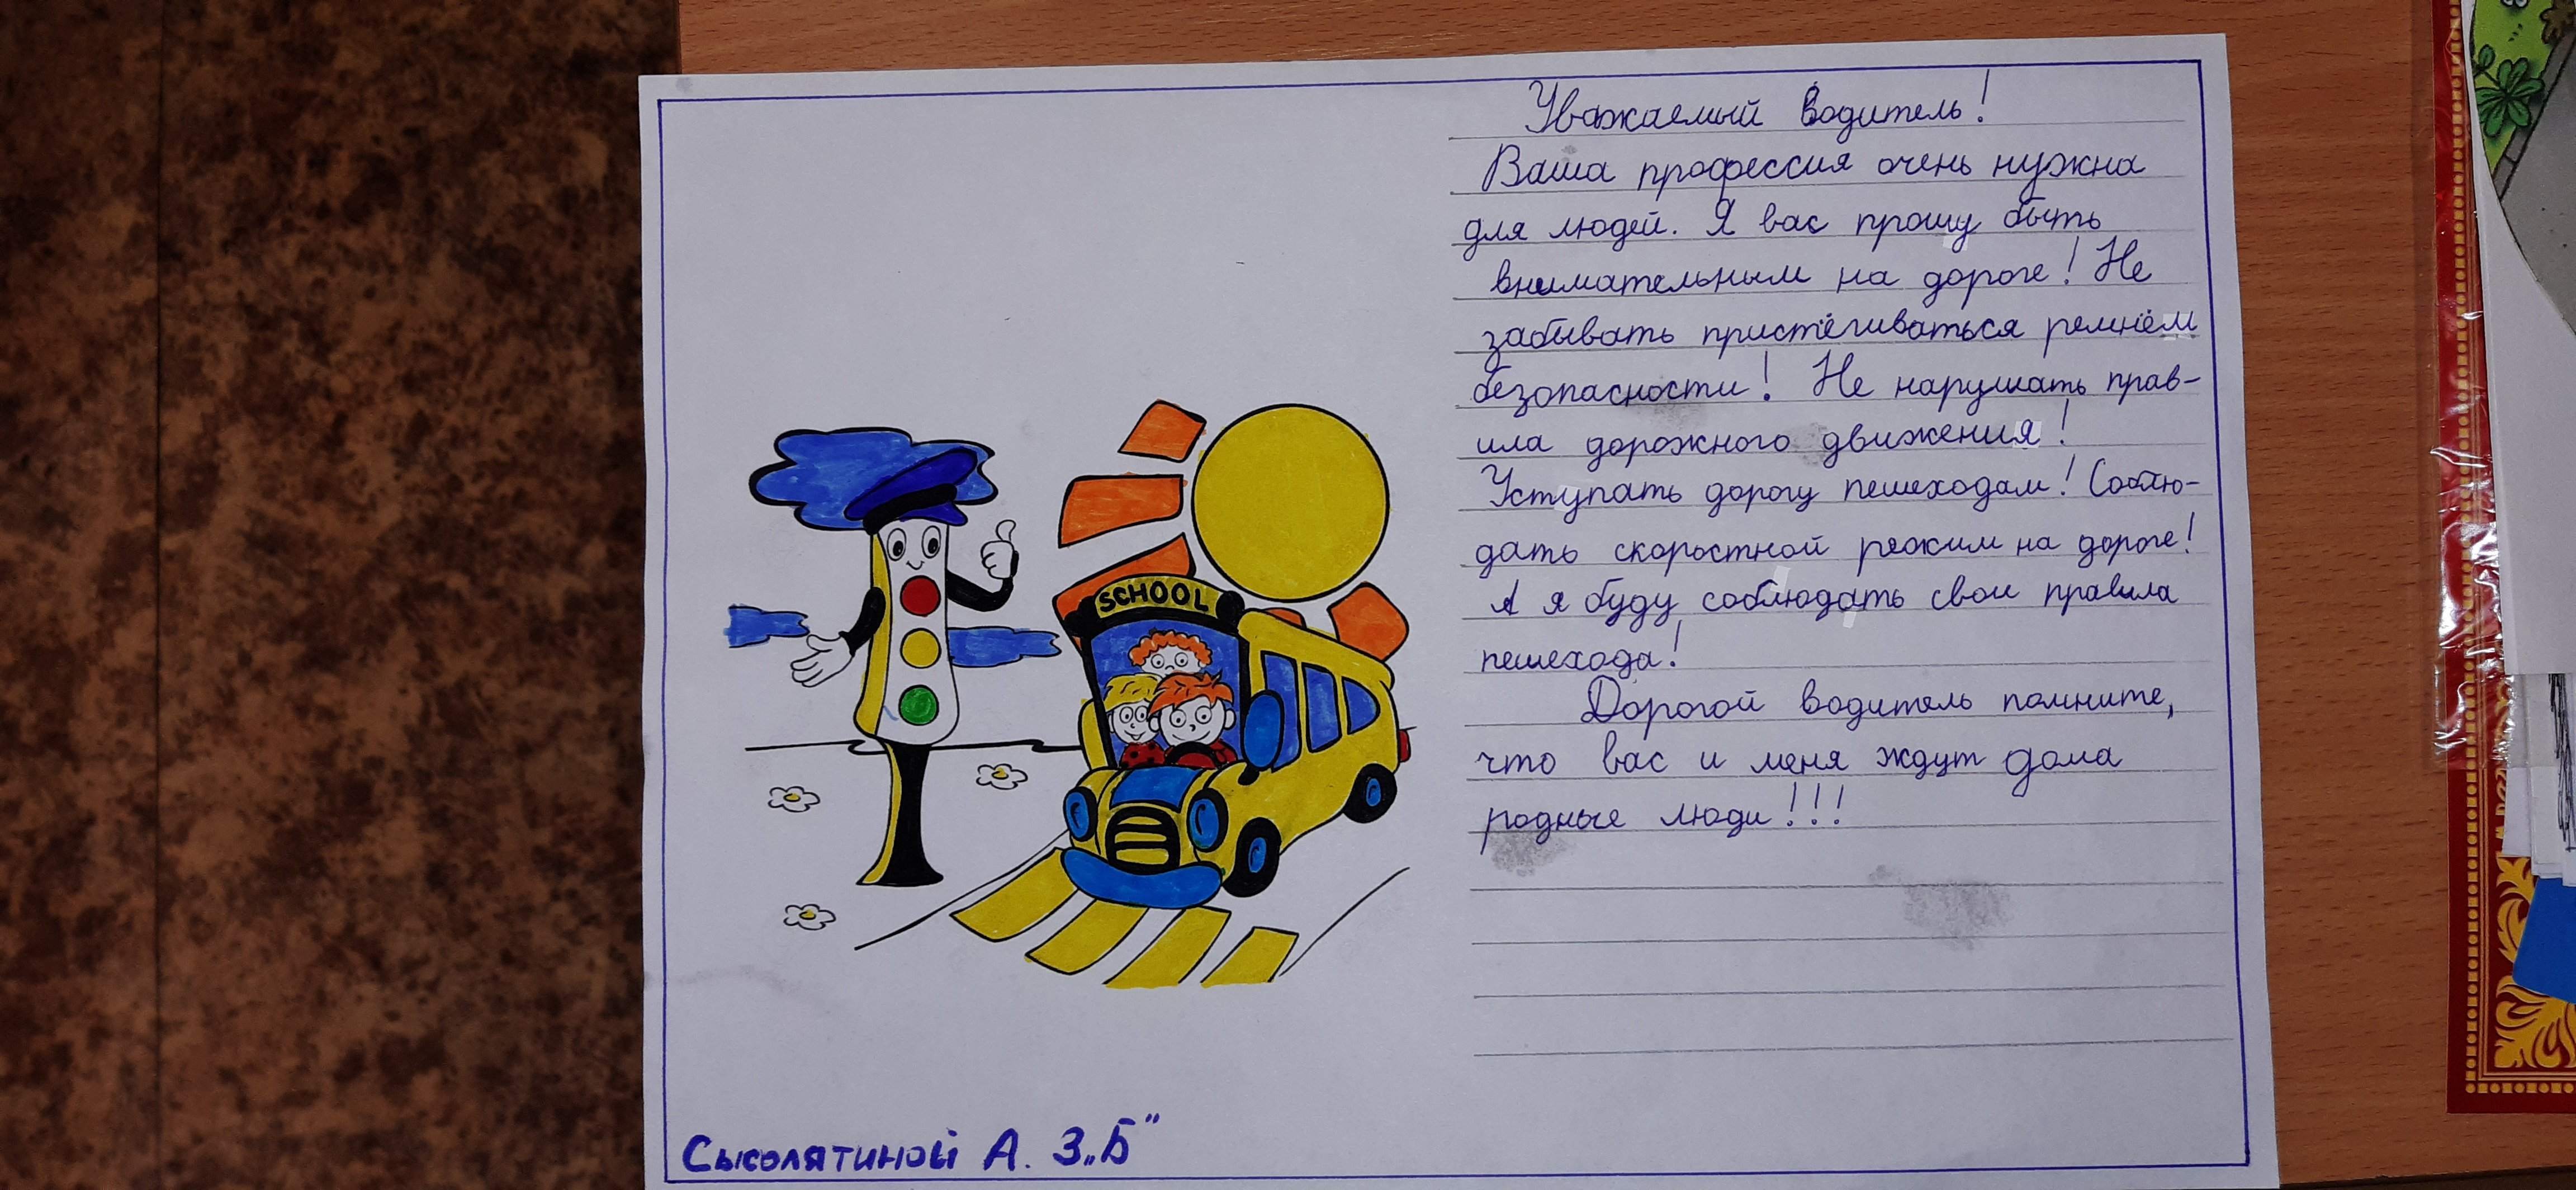 Уважаемый Водитель!
Ваша профессия очень нужна
для людей. Я вас прошу быть
внимательным на дороге! Не
забывать пристёгиваться ремнём
безопасности! Не нарушать прав-
ила дорожного движения!
Уступать дорогу пешеходам! Соблю-
дать скоростной режим на дороге!
А я буду соблюдать свои правила
пешехода!
Дорогой водитель помните,
что вас и меня ждут дома
родные люди!!!
SCHOOL
Сысолятиной А. 3„Б"